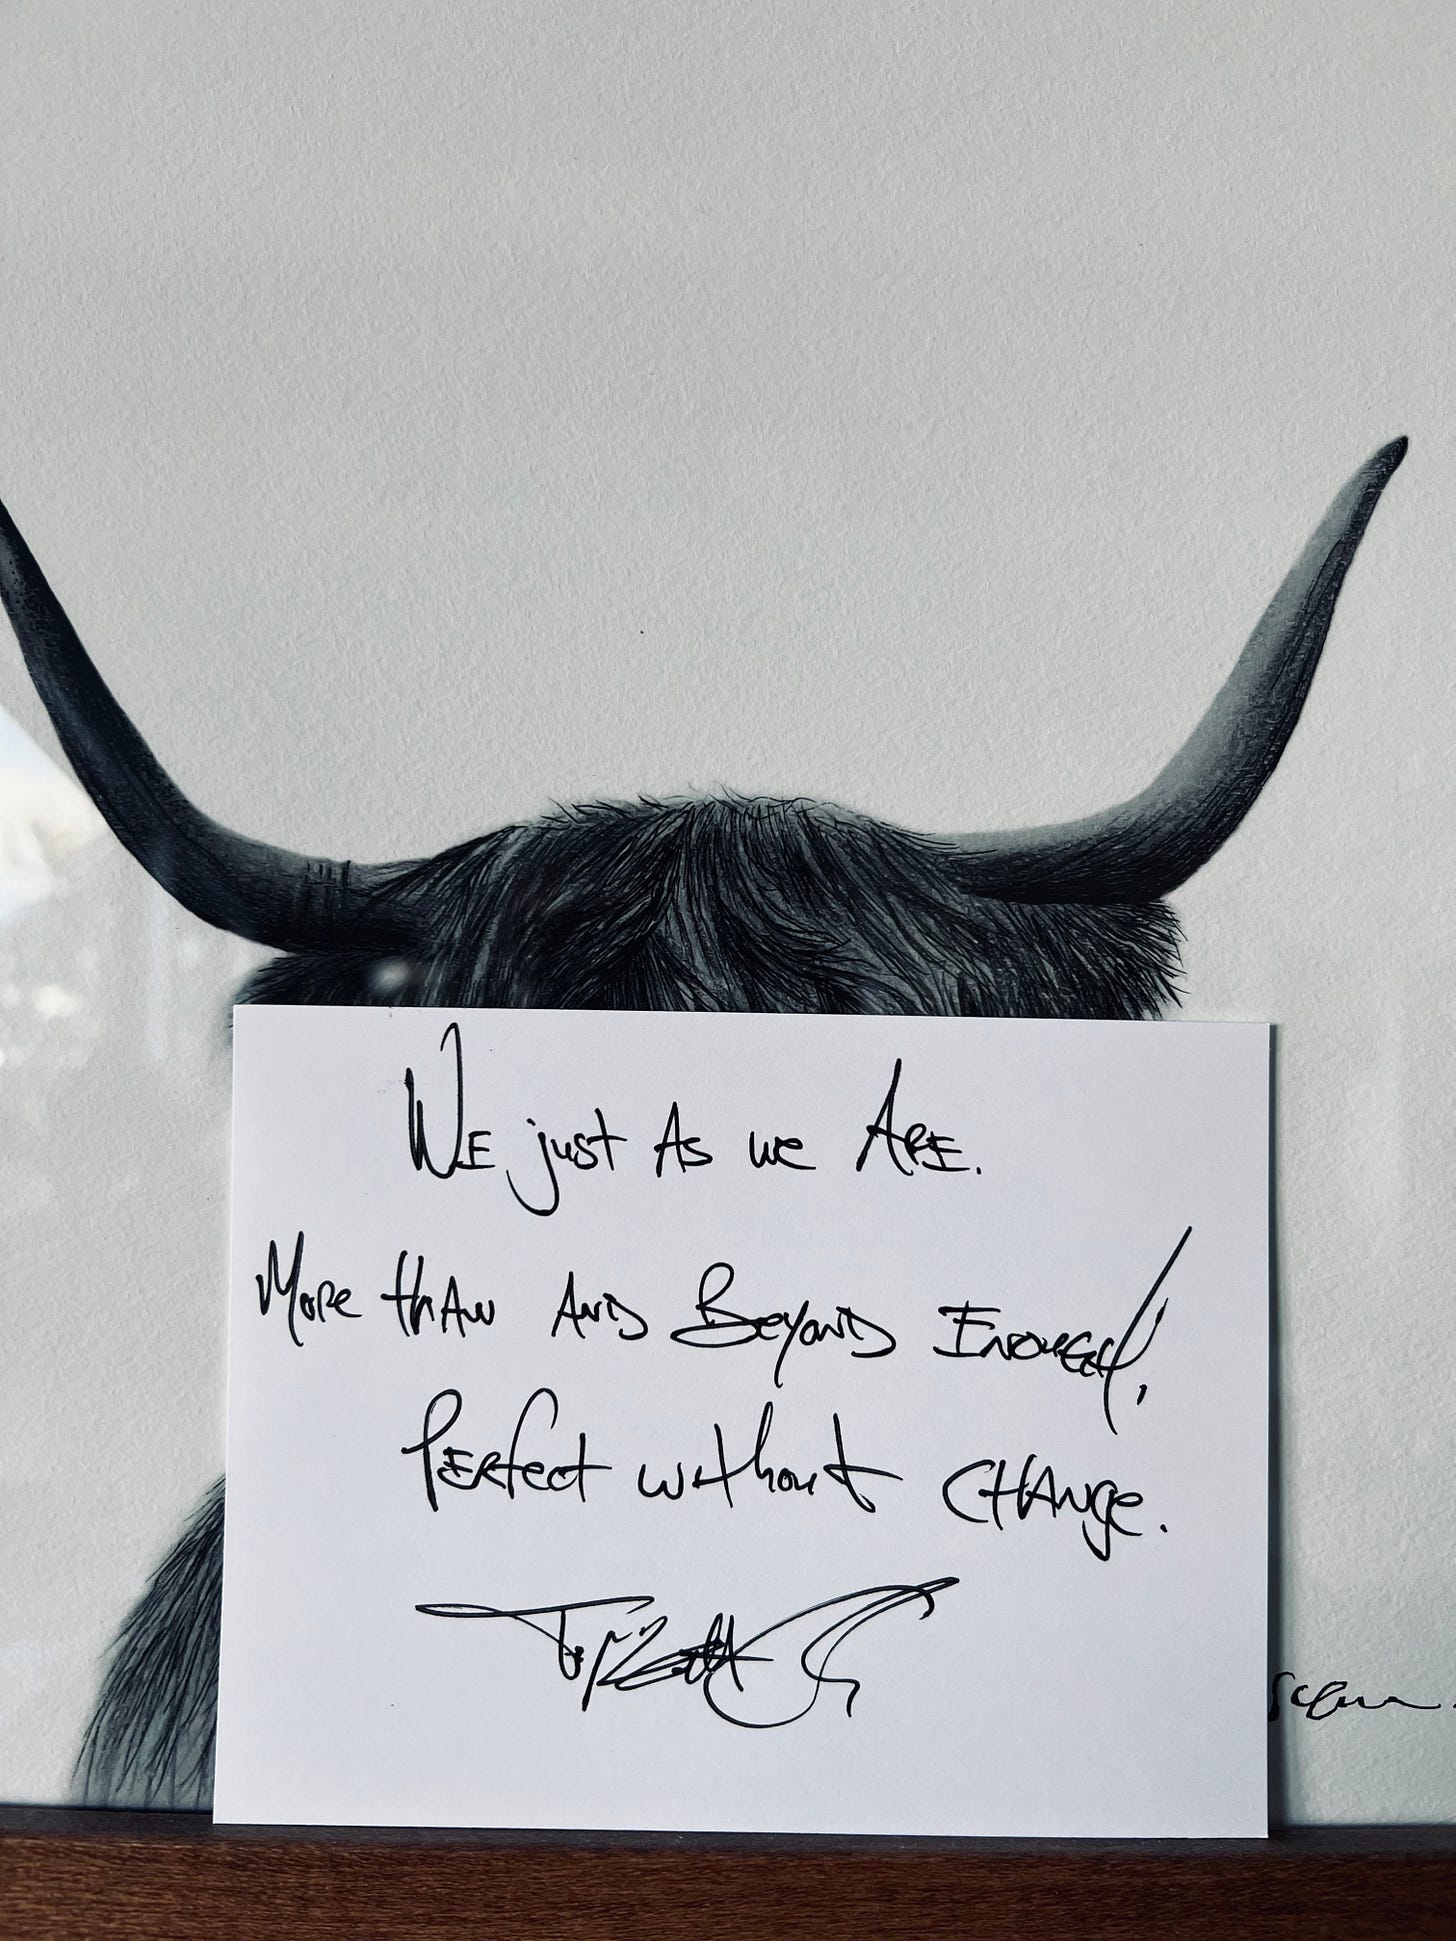 WE just As we ARE.
More thAN AND BeyonD ENOUGH,
PERfect without CHANge.